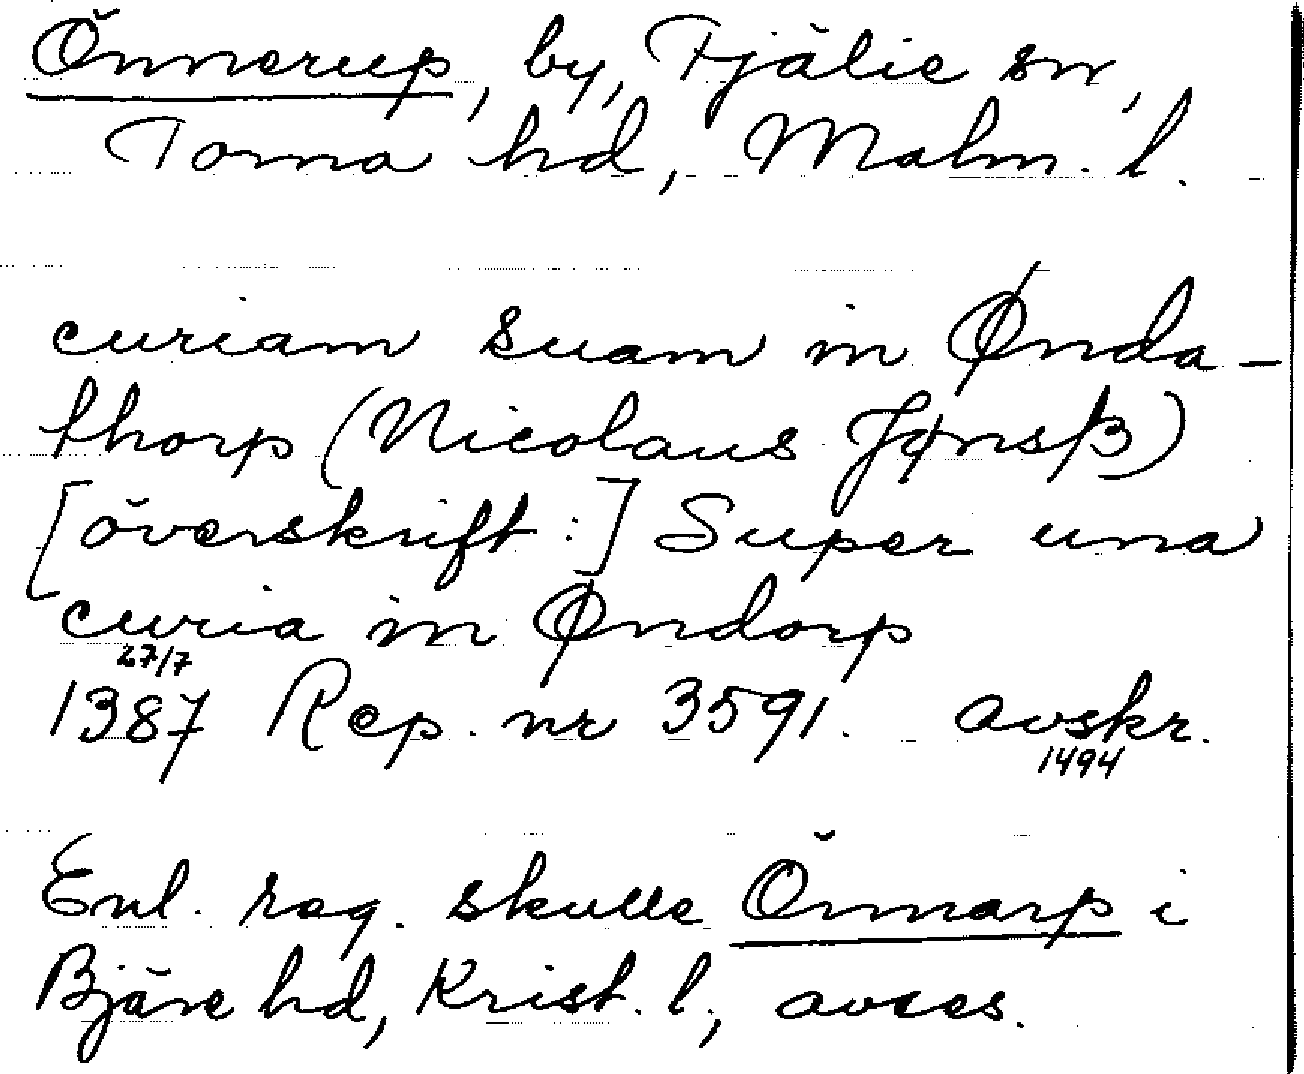 Önnerup, by, Fjälie sn,
Torna hd, Malm. l.
curiam suam in Ønda-
thorp (Nicolaus Jønsß)
[överskrift:] Super una
curia in Øndorp
27/7
1387 Rep. nr 3591. avskr.
1494
Enl. reg. skulle Önnarp i
Bjäre hd, Krist. l., avses.